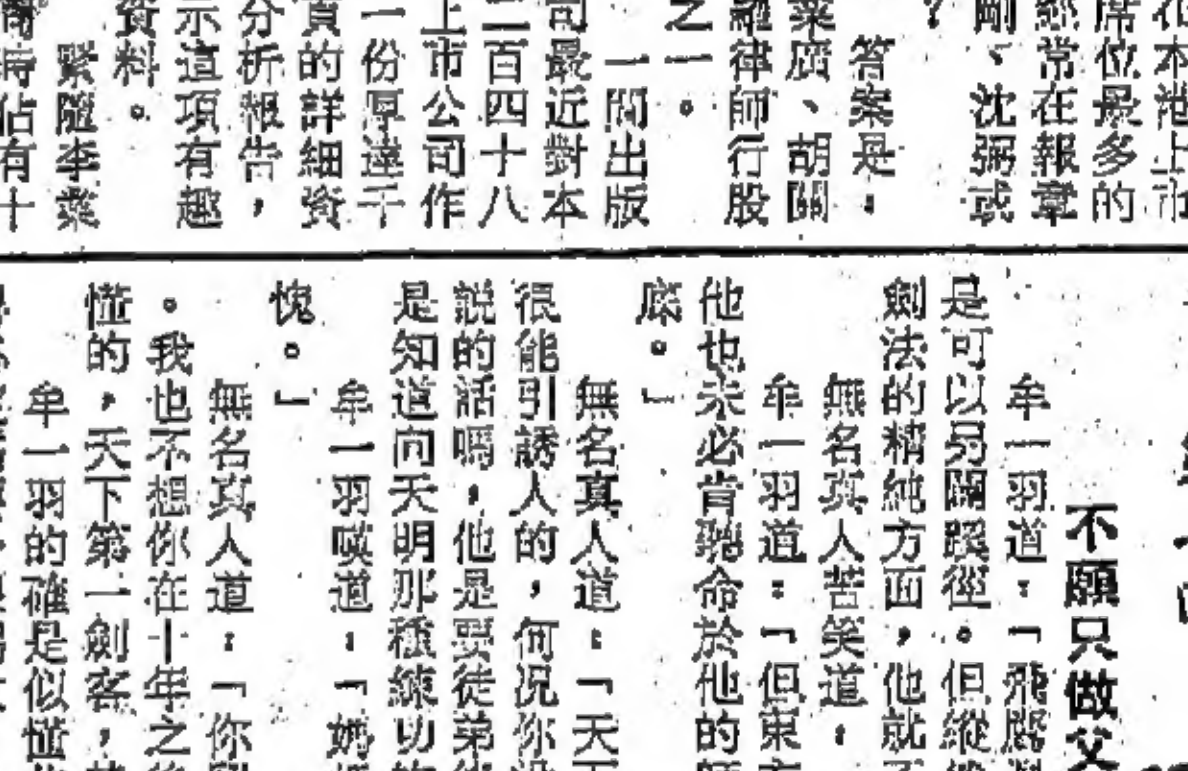 席位最多的
經常在報章
剛、沈弼或
?
答案是:
葉廣、胡關
羅律師行股
之一。
一間出版
司最近對本
二百四十八
上市公司作
一份厚達千
頁的詳細資
分析報告,
示這項有趣
資料。
緊隨李業
時佔有十
不願只做父
牟一羽道:「飛
是可以另闢蹊徑。但縱
劍法的精純方面,他就
無名真人苦笑道:
牟一羽道:「但東
他也未必肯聽命於他的
底。」
無名真人道:「天
很能引誘人的,何況你
説的話嗎,他是要徒弟
是知道向天明那種練功
牟一羽嘆道:「
愧。」
無名真人道:「你
。我也不想你在十年之
懂的,天下第一劍客,
牟一羽的確是似懂